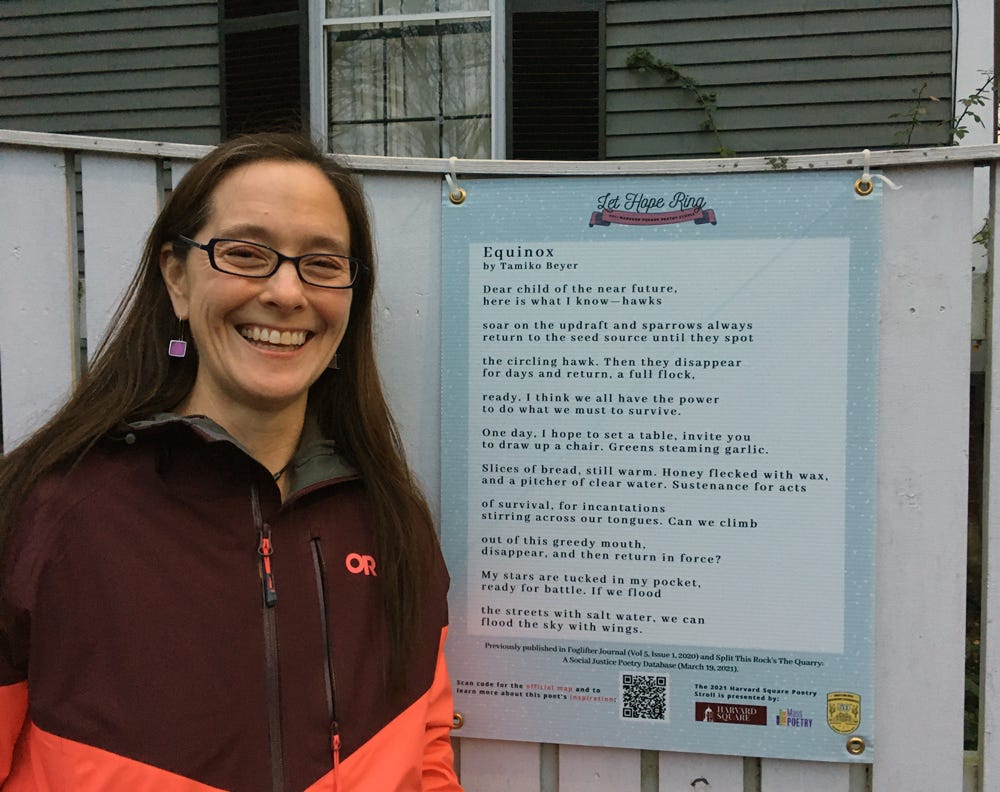 Let Hope Ring
2021 HARVARD SQUARE POETRY STROLL
Equinox
by Tamiko Beyer
Dear child of the near future,
here is what I know—hawks
soar on the updraft and sparrows always
return to the seed source until they spot
the circling hawk. Then they disappear
for days and return, a full flock,
ready. I think we all have the power
to do what we must to survive.
One day, I hope to set a table, invite you
to draw up a chair. Greens steaming garlic.
Slices of bread, still warm. Honey flecked with wax,
and a pitcher of clear water. Sustenance for acts
of survival, for incantations
stirring across our tongues. Can we climb
out of this greedy mouth,
disappear, and then return in force?
My stars are tucked in my pocket,
ready for battle. If we flood
the streets with salt water, we can
flood the sky with wings.
Previously published in Foglifter Journal (Vol 5, Issue 1, 2020) and Split This Rock's The Quarry:
A Social Justice Poetry Database (March 19, 2021).
Scan code for the official map and to
learn more about this poet's inspiration!
The 2021 Harvard Square Poetry
Stroll is presented by:
HARVARD
SQUARE
Mass
POETRY
OR